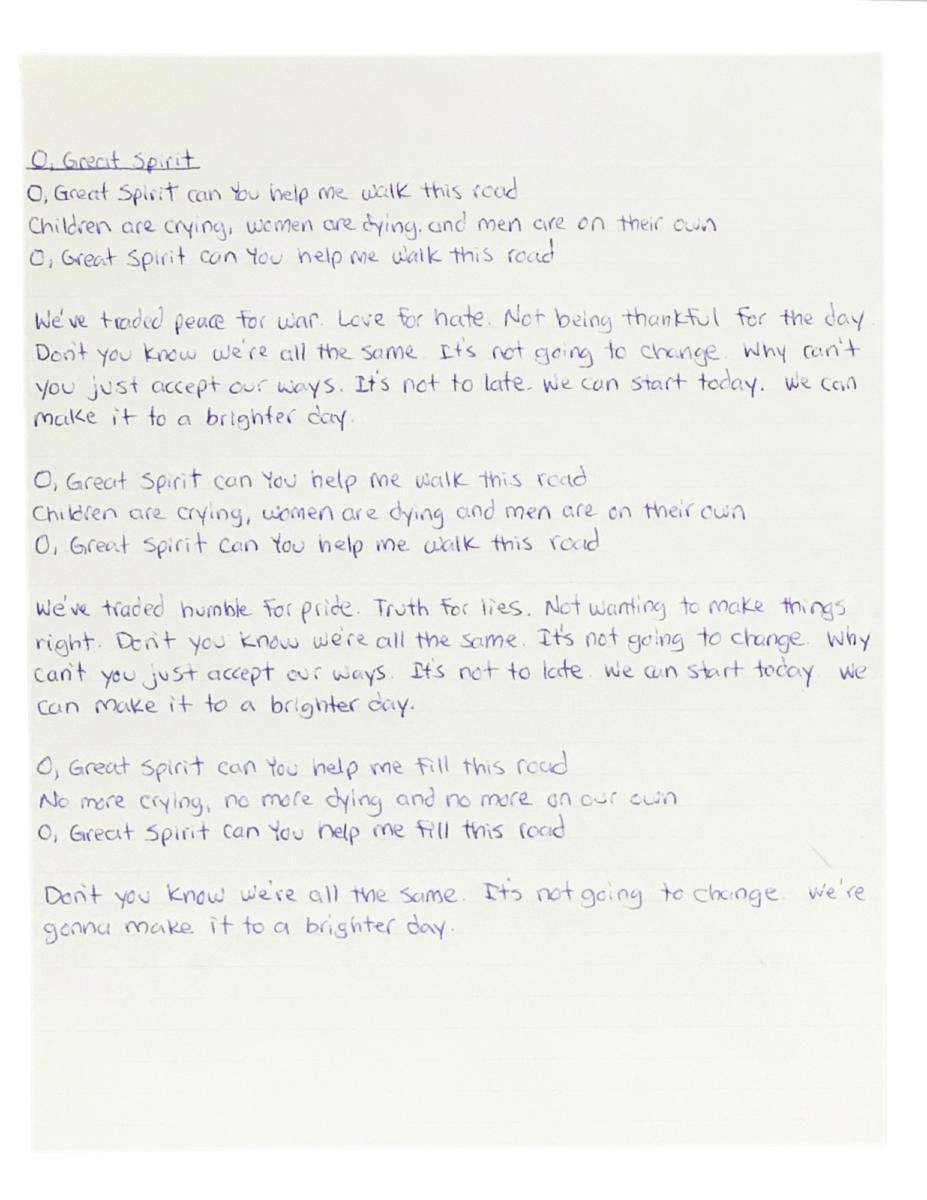 O, Great Spirit
O, Great Spirit can You help me walk this road
Children are crying, women are dying, and men are on their own
O, Great Spirit can You help me walk this road
We've traded peace for war. Love for hate. Not being thankful for the day.
Don't you know we're all the same. It's not going to change. Why can't
you just accept our ways. It's not to late. We can start today. We can
make it to a brighter day.
O, Great Spirit can You help me walk this road
Children are crying, women are dying and men are on their own
O, Great Spirit can You help me walk this road
We've traded humble for pride. Truth for lies. Not wanting to make things
right. Don't you know we're all the same. It's not going to change. Why
can't you just accept our ways. It's not to late. We can start today. We
can make it to a brighter day.
O, Great Spirit can You help me fill this road
No more crying, no more dying and no more on our own
O, Great Spirit can You help me fill this road
Don't you know we're all the same. It's not going to change. We're
gonna make it to a brighter day.